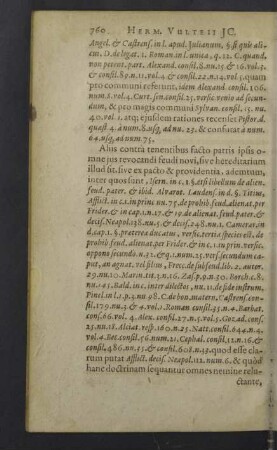 760 HERM. VULTEII JC.
Angel. & Castrens. in l. apud Julianum, §. si quis ali-
em. D. de legat. 1. Roman. in l. unica, q. 12. C. quand.
non petent. part. Alexand. consil. 8. nu. 15 & 16. vol. 3
& consil. 89. n. 11. vol. 4 & consil. 22. n. 14. vol. 5. quam
pro communi referunt, idem Alexand. consil. 106.
num. 8. vol. 4. Curt. sen. consil. 25. versic. venio ad secun-
dum, & pro magis communi Sylvan. consil. 15. nu.
40. vol. 1. atq; ejusdem rationes recenset Pistor. d.
quæst. 4. à num. 8. usq; ad nu. 23. & confutat à num.
64. usq; ad num. 75.
Alius contra tenentibus facto patris ipsis o-
mne jus revocandi feudi novi, sive hereditarium
illud sit, sive ex pacto & providentia, ademtum,
inter quos sunt, Isern. in c. 1. §. etsi libellum de alien.
feud. pater. & ibid. Alvarot. Laudens. in d. §. Titius,
Afflict. in c. 1. in princ. nu. 75. de prohib. feud. alienat. per
Frider. & in cap. 1. n. 17. & 19. de alienat. feud. pater. &
decis. Neapol. 158. nu. 5. & decis. 248. nu. 1. Camerar. in
d. cap. 1. §. præterea ducatus, versic. tertia species est, de
prohib. feud. alienat. per Frider. & in c. 1. in prin. versic.
oppono secundo. n. 32. & q. 1. num. 23. vers. secundum ca-
put, an agnat. vel filius, Frecc. de subfeud. lib. 2. autor.
29. nu. 10. Marin. tit. 3. n. 16. Zas. p. 9. n. 30. Borch. c. 8.
nu. 145. Bald. in c. inter dilectos, nu. 11. de fide instrum.
Pinel. in l. 2. p. 3. nu. 98. C. de bon. matern. Castrens. con-
sil. 179. nu. 3 & 4. vol. 2. Roman. consil. 35. n. 4. Barbat.
cons. 66. vol. 4. Alex. consil. 27. n. 5. vol. 5. Goz. ad. cons.
23. nu. 18. Alciat. resp. 160. n. 25. Natt. consil. 644. n. 4.
vol. 4. Bec. consil. 56. num. 21. Cephal. consil. 12. n. 16. &
consil. 486. nu. 15. & consil. 608. n. 49. quod esse cla-
rum putat Afflict. decis. Neapol. 112. num. 6. & quod
hanc doctrinam sequantur omnes nemine relu-
ctante,